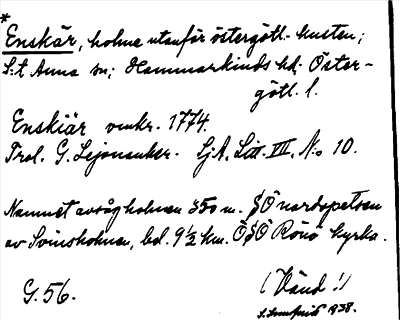 *
Enskär, holme utanför östergötl. kusten;
S:t Anna sn; Hammarkinds hd; Öster-
götl. l.
Enskiär omkr. 1774.
Trol. G. Lejonanker. SjA, Litt. III, No 10.
Namnet avsåg holmen 350 m. SÖ nordspetsen
av Svinsholmen, bel. 9½ km. ÖSÖ Rönö kyrka.
G. 56.
(Vänd!)
1938.